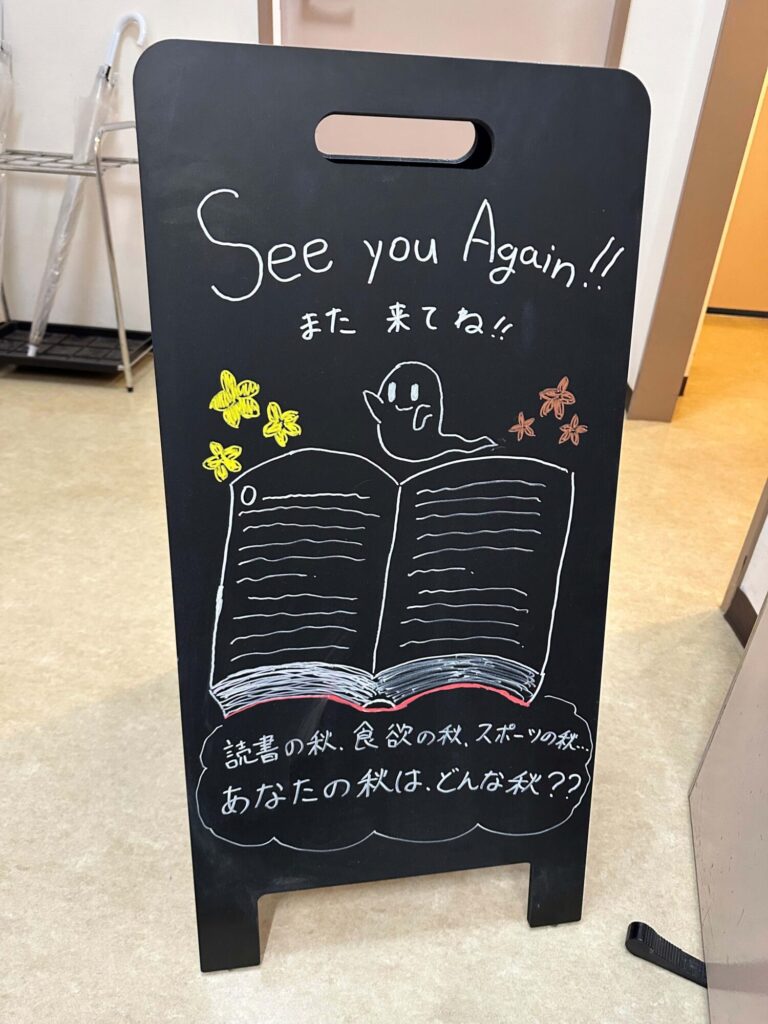 See you Again!!
また 来てね!!
読書の秋、食欲の秋、スポーツの秋...
あなたの秋は、どんな秋??